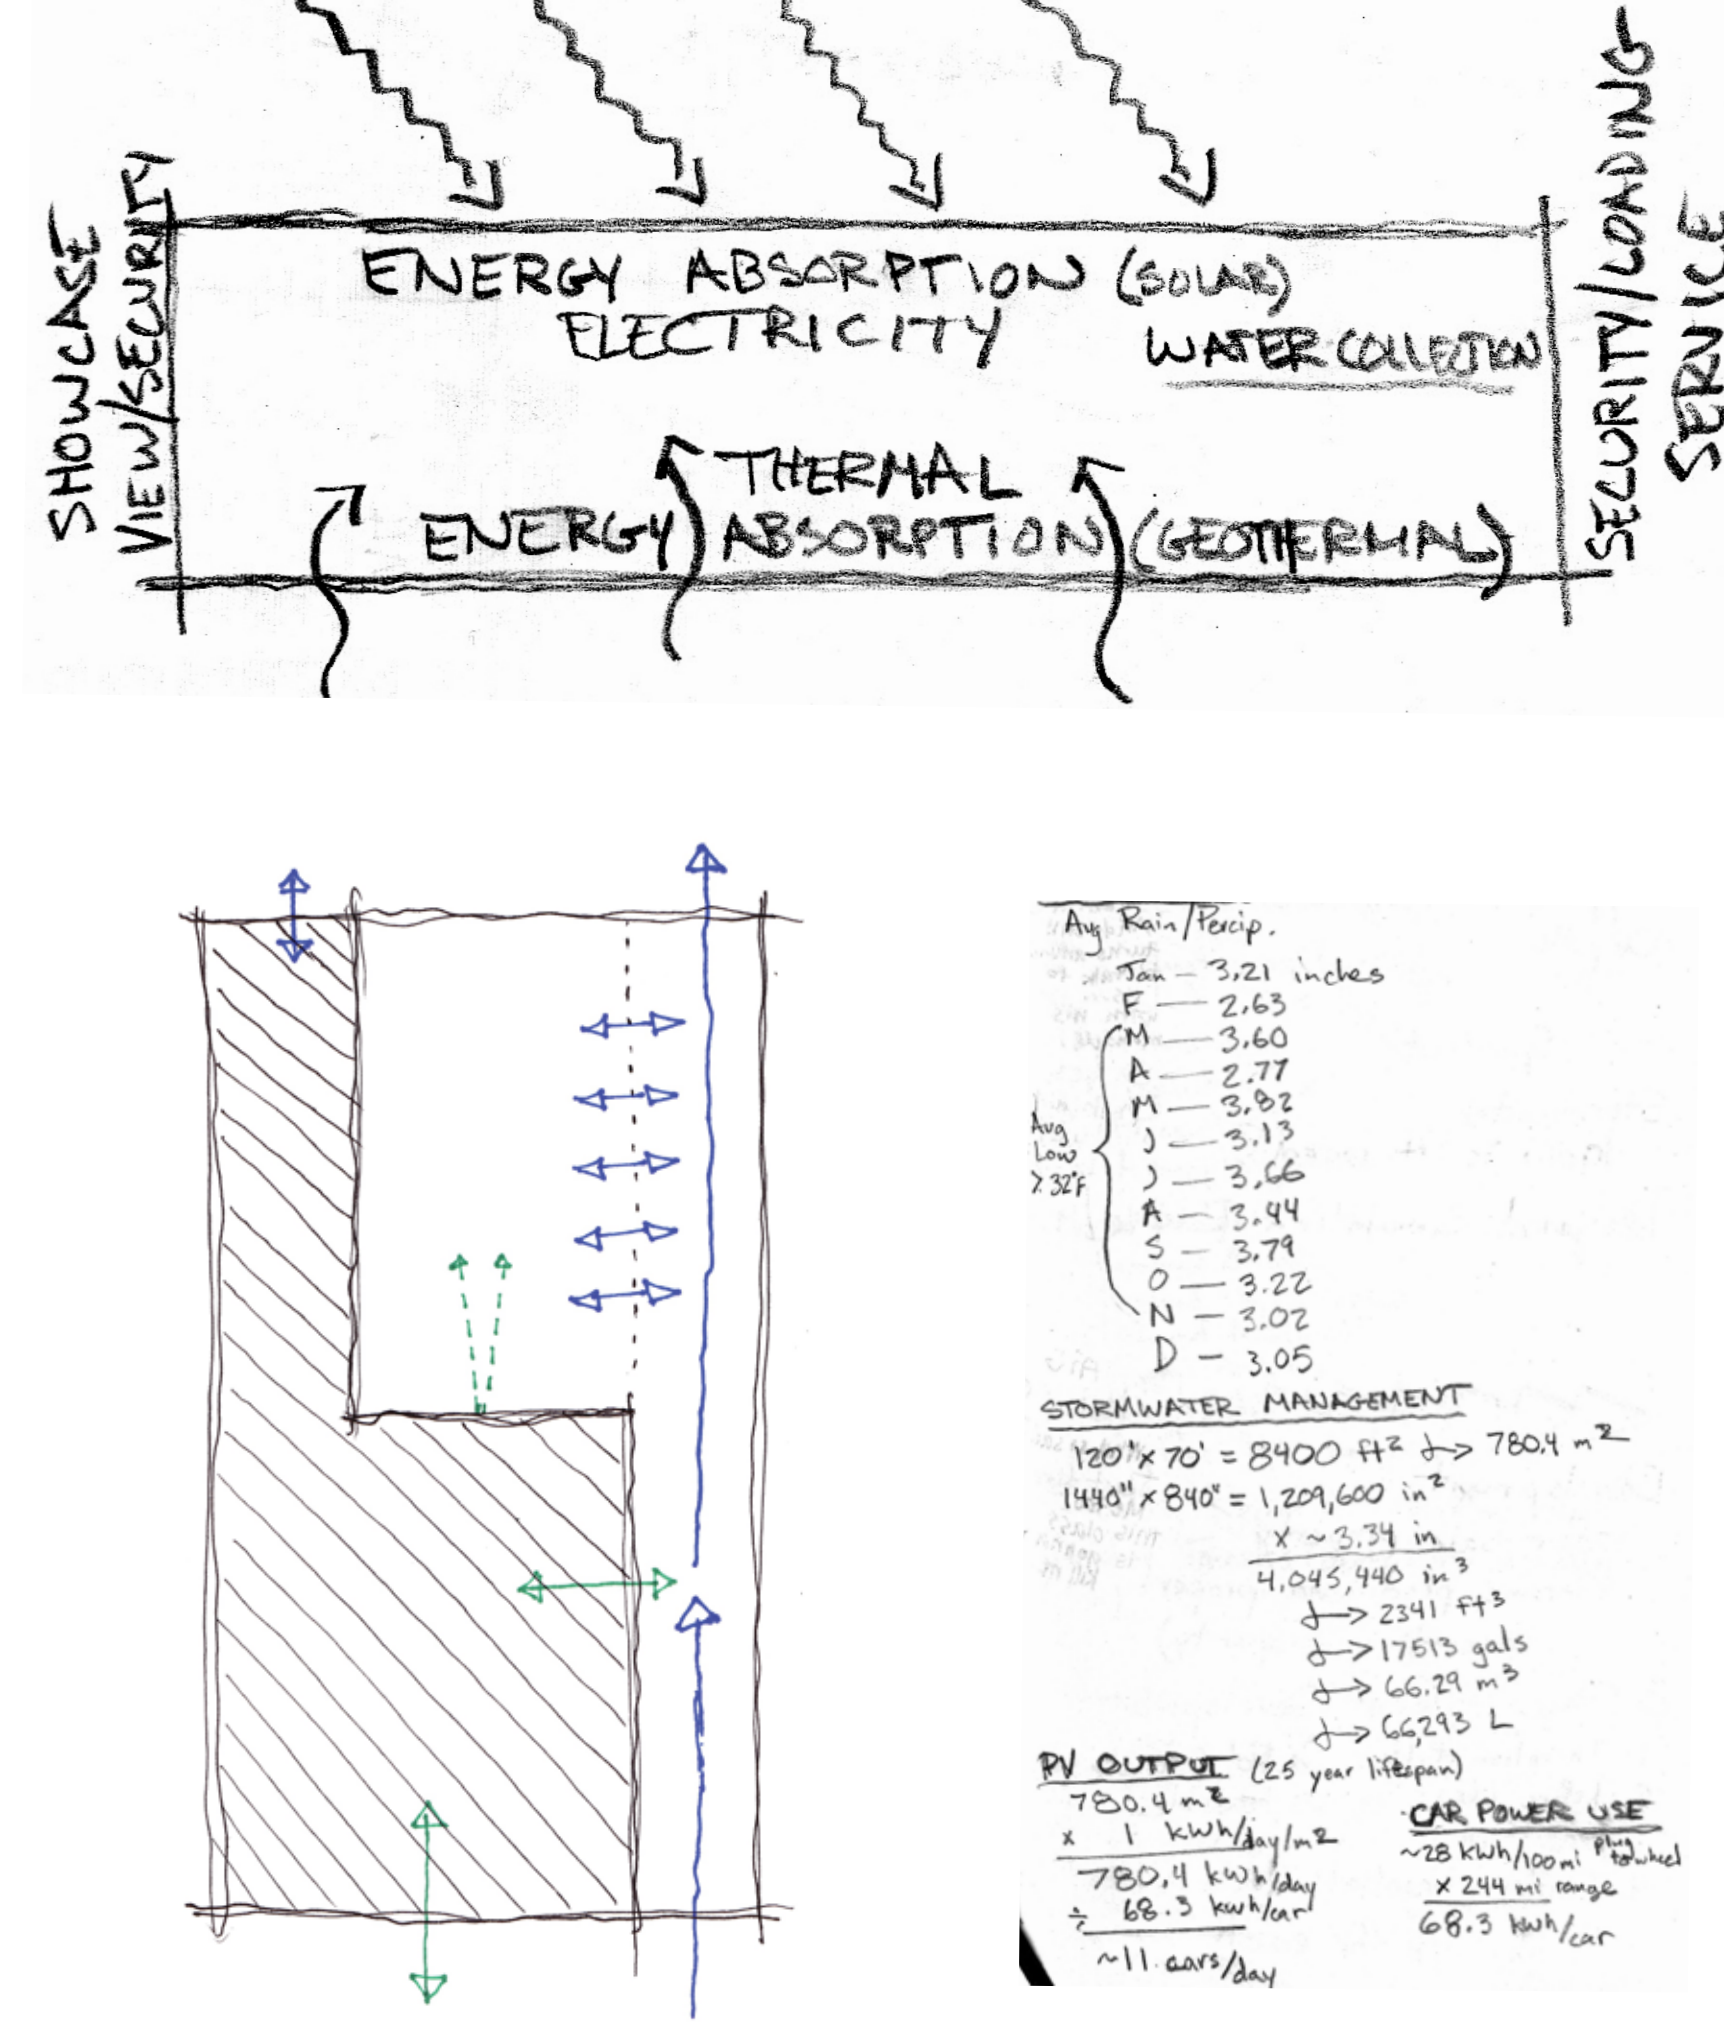 SHOWCASE
VIEW/SECURITY
ENERGY ABSORPTION (SOLAR)
ELECTRICITY
WATER COLLECTION
THERMAL
ENERGY ABSORPTION (GEOTHERMAL)
SECURITY/LOADING
SERVICE
Avg Rain/Percip.
Jan — 3.21 inches
F — 2.63
M — 3.60
A — 2.77
M — 3.82
J — 3.13
J — 3.66
A — 3.44
S — 3.79
O — 3.22
N — 3.02
D — 3.05
Avg
Low
> 32°F
STORMWATER MANAGEMENT
120' x 70' = 8400 ft² → 780.4 m²
1440" x 840" = 1,209,600 in²
x ~3.34 in
4,045,440 in³
→ 2341 ft³
→ 17513 gals
→ 66.29 m³
→ 66,293 L
PV OUTPUT (25 year lifespan)
780.4 m²
x 1 kWh/day/m²
780.4 kWh/day
÷ 68.3 kWh/car
~11 cars/day
CAR POWER USE
~28 kWh/100mi plug to wheel
x 244 mi range
68.3 kWh/car